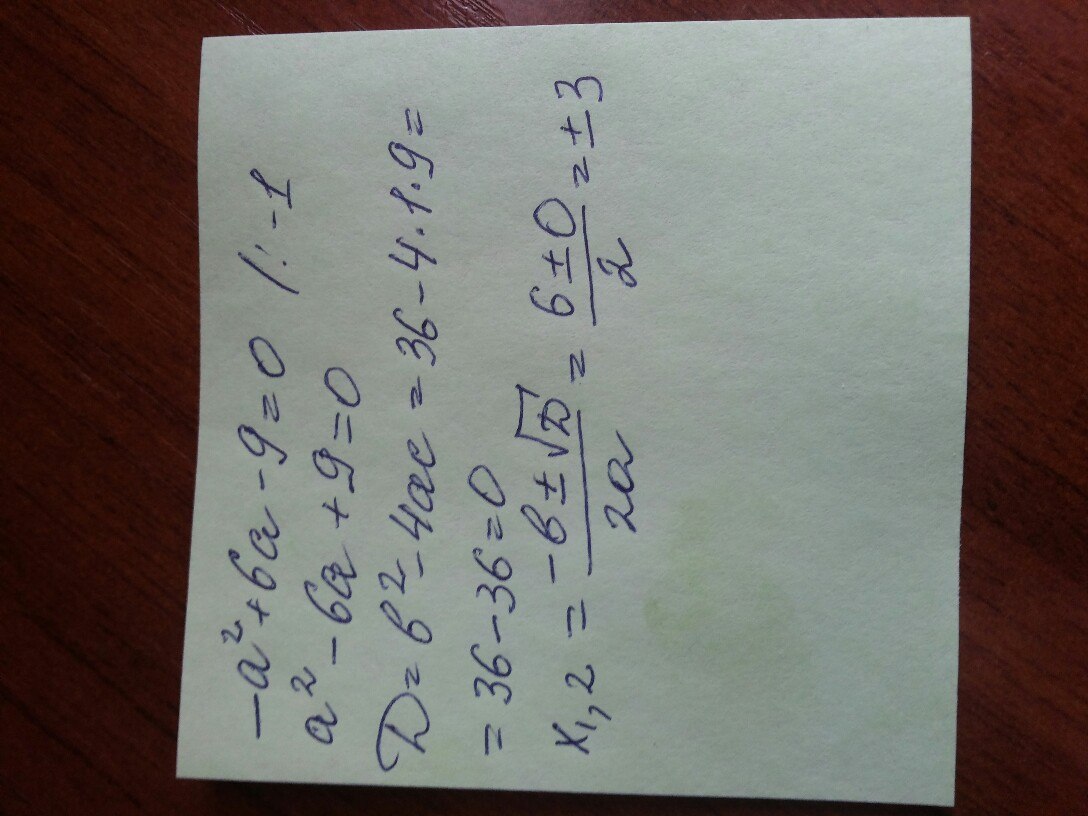 -a²+6a-9=0 /:-1
a²-6a+9=0
D=b²-4ac=36-4·1·9=
=36-36=0
x₁,₂ = (-b±√D)/2a = (6±0)/2 = ±3